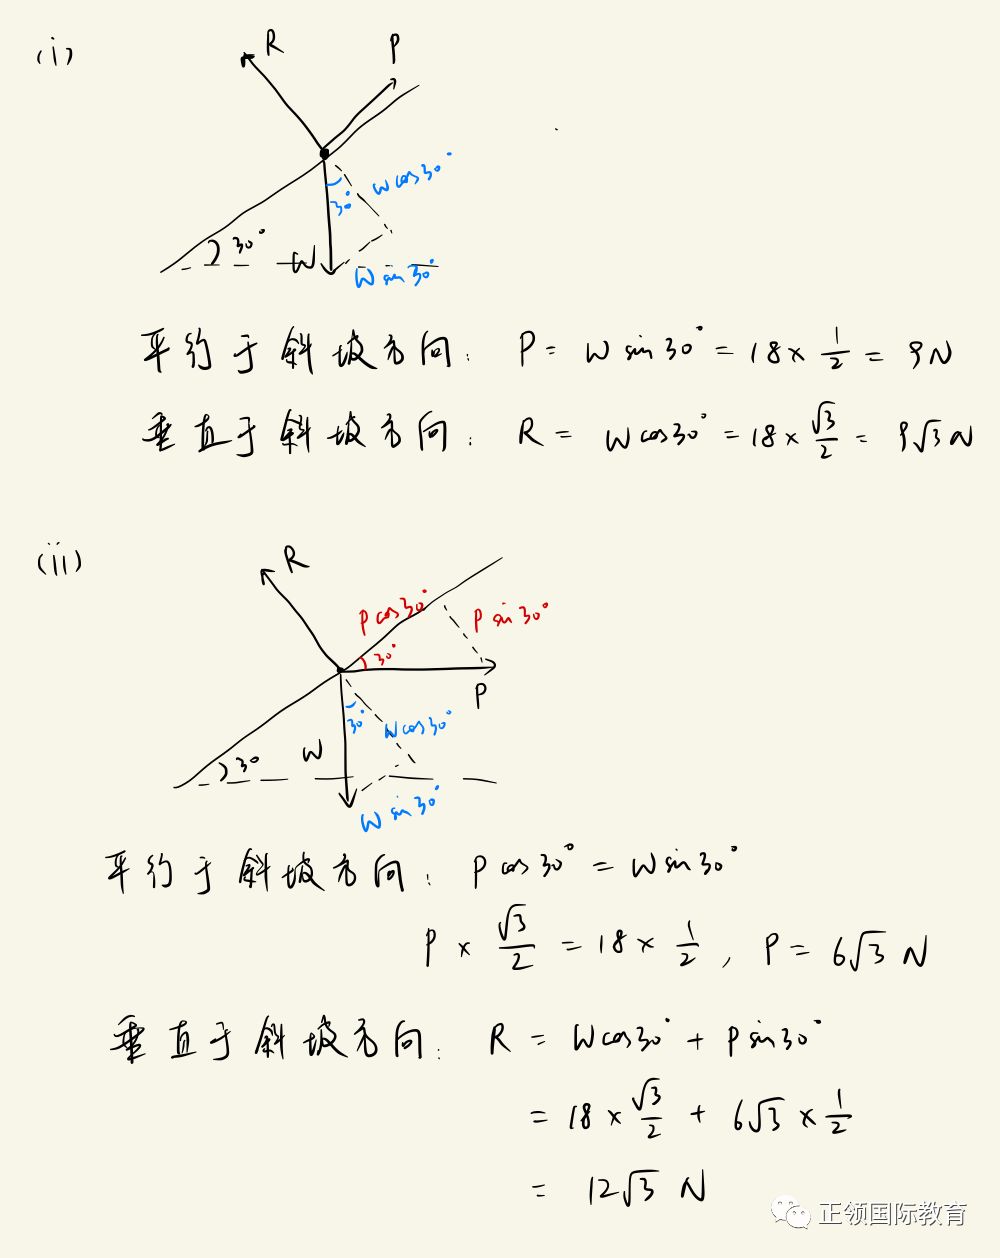 (i)
R
P
W cos30°
30°
30°
W
W sin30°
平行于斜坡方向: P = W sin30° = 18 × 1/2 = 9N
垂直于斜坡方向: R = W cos30° = 18 × √3/2 = 9√3 N
(ii)
R
P cos30°
P sin30°
30°
P
30°
W cos30°
W
30
W sin30°
平行于斜坡方向: P cos30° = W sin30°
P × √3/2 = 18 × 1/2 , P = 6√3 N
垂直于斜坡方向: R = W cos30° + P sin30°
= 18 × √3/2 + 6√3 × 1/2
= 12√3 N
正领国际教育